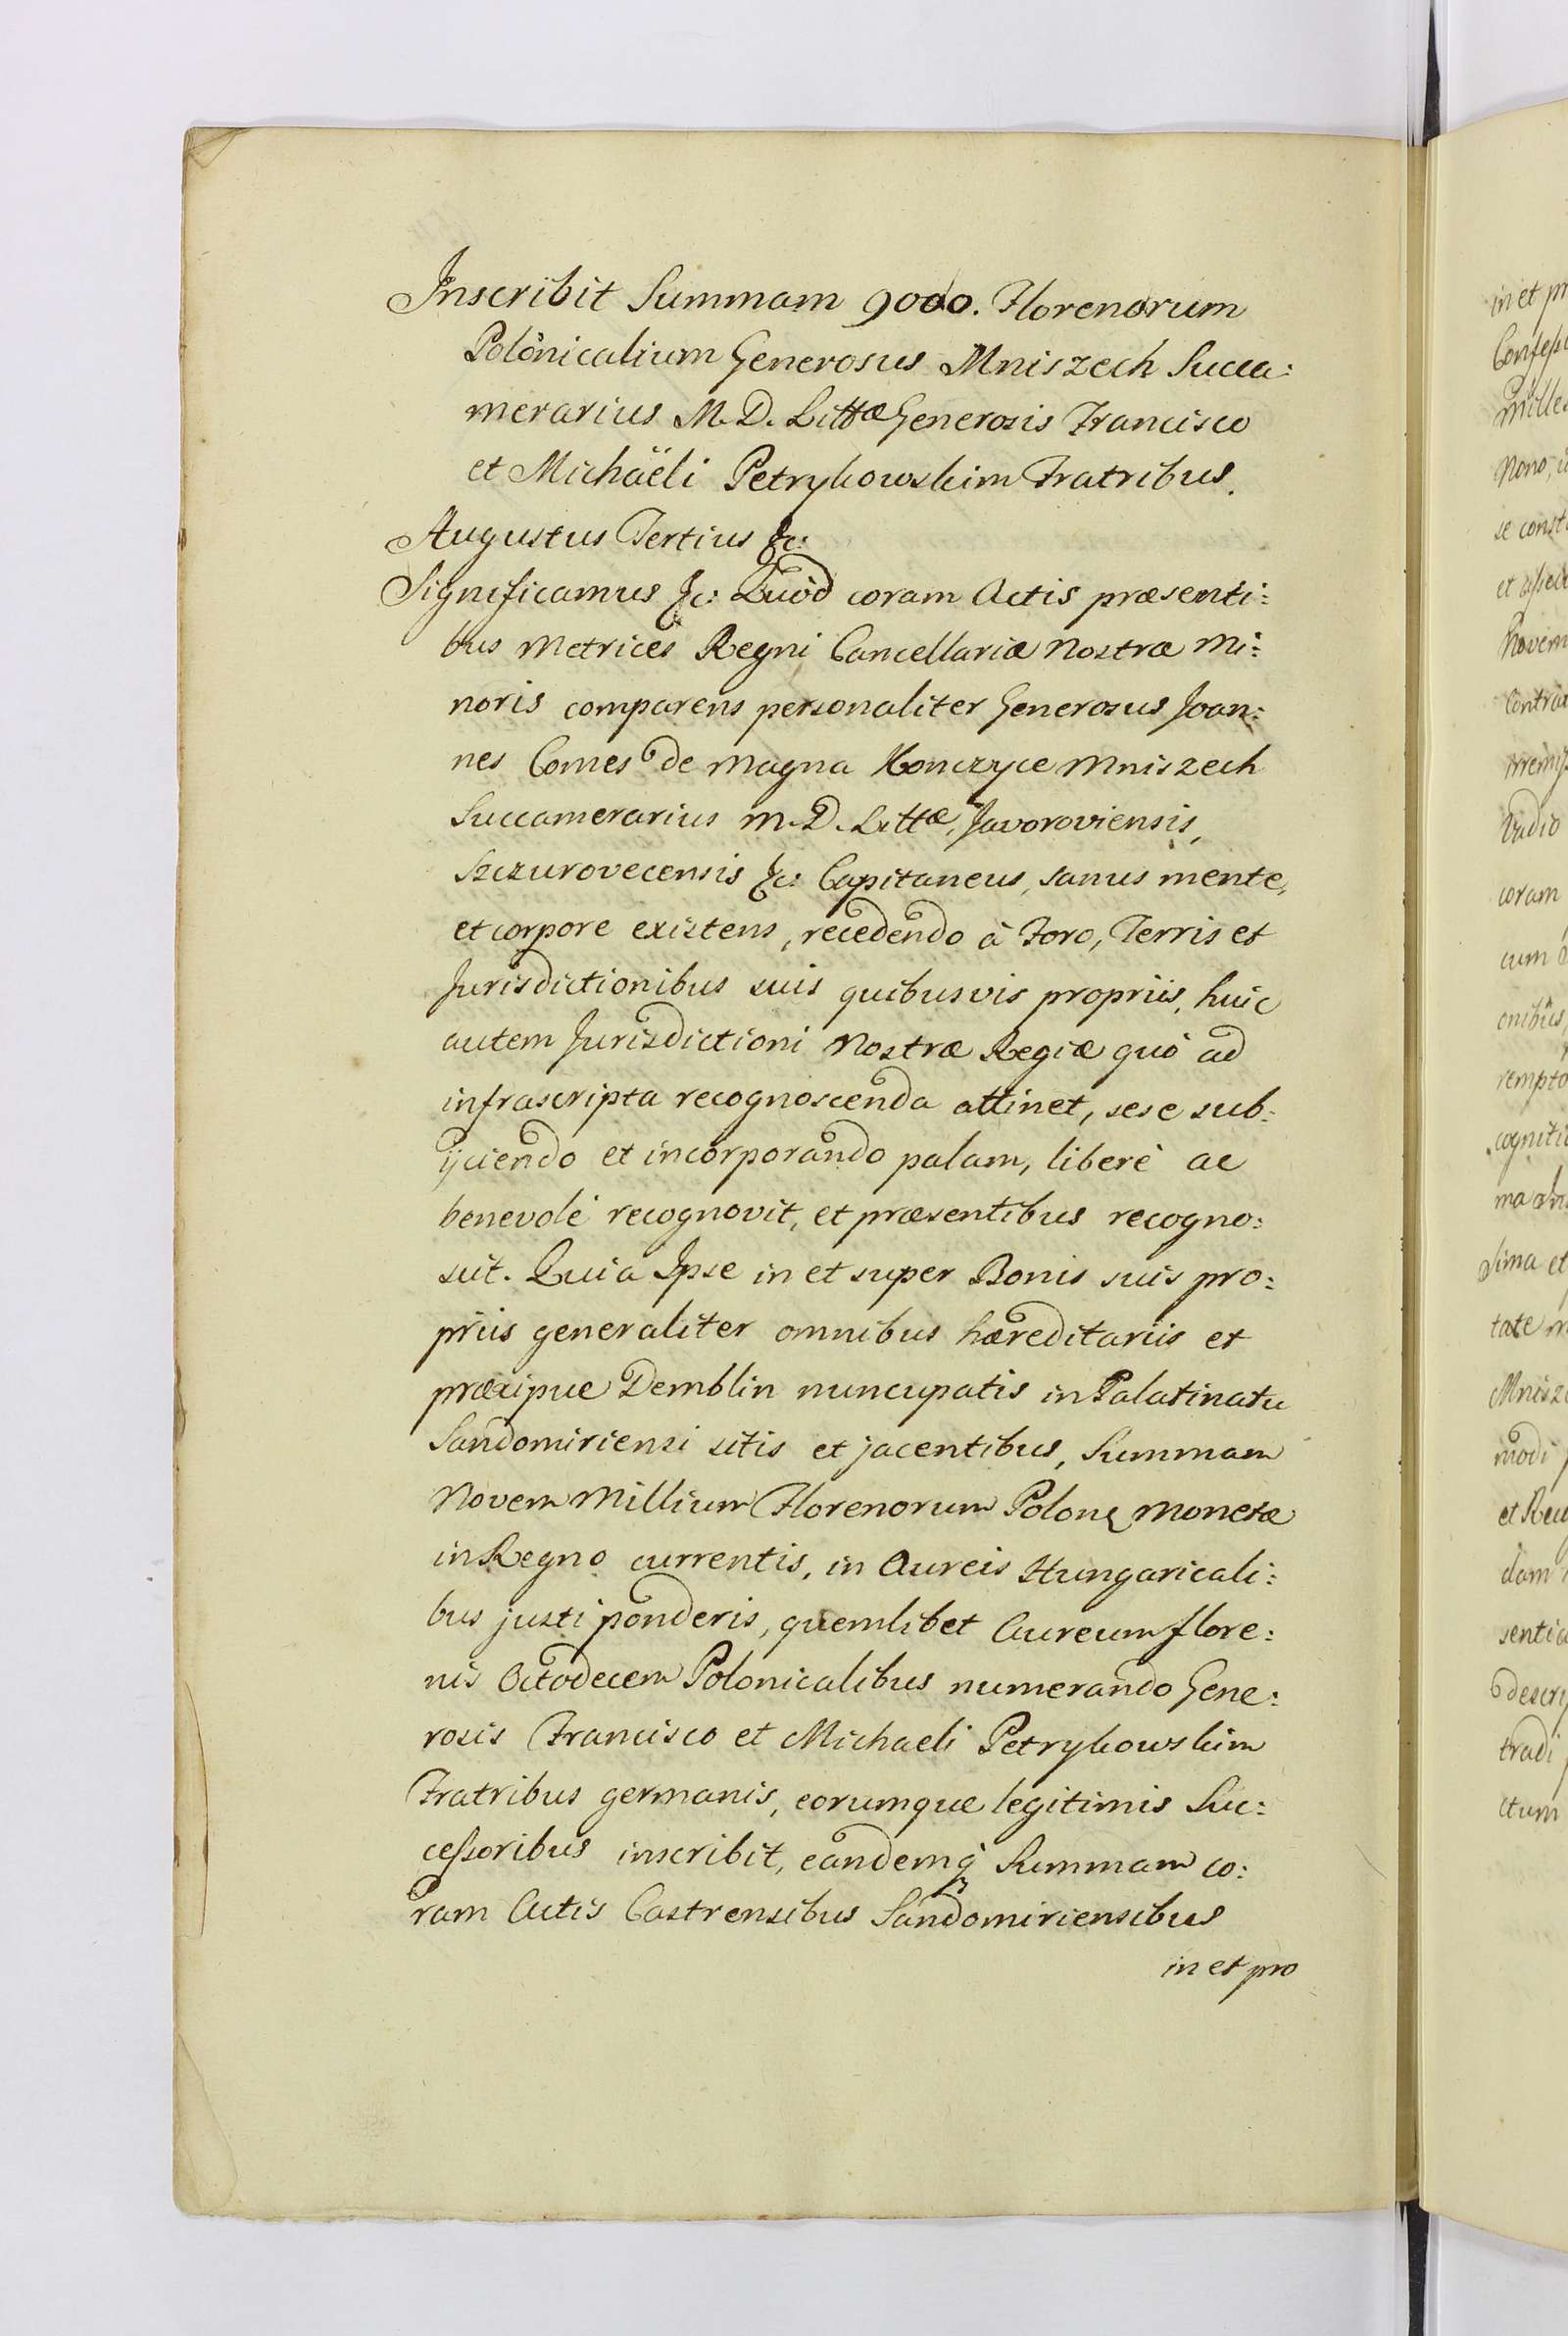 Inscribit Summam 9000. Florenorum
Polonicalium Generosus Mniszech Succa:
merarius M. D. Littæ Generosis Francisco
et Michaëli Petrykowskim Fratribus.
Augustus Tertius &c:
Significamus &c: Quòd coram Actis præsenti:
bus Metrices Regni Cancellariæ Nostræ Mi:
noris comparens personaliter Generosus Joan:
nes Comes de Magna Konczyce Mniszech
Succamerarius M. D. Littæ, Javoroviensis,
Szczurovecensis &c: Capitaneus, sanus mente,
et corpore existens, recedendo à Foro, Terris et
Jurisdictionibus suis quibusvis propriis, huic
autem Jurisdictioni Nostræ Regiæ quò ad
infrascripta recognoscenda attinet, sese sub:
ijciendo et incorporando palam, liberè ac
benevolè recognovit, et præsentibus recogno:
scit. Quia Ipse in et super Bonis suis pro:
priis generaliter omnibus hæreditariis et
præcipue Demblin nuncupatis in Palatinatu
Sandomiriensi sitis et jacentibus, Summam
Novem Millium Florenorum Polonę Monetæ
in Regno currentis, in Aureis Hungaricali:
bus justi ponderis, quemlibet Aureum flore:
nis Octodecem Polonicalibus numerando Gene:
rosis Francisco et Michaeli Petrykowskim
Fratribus germanis, eorumque legitimis Suc:
cessoribus inscribit, eandemq; Summam co:
ram Actis Castrensibus Sandomiriensibus
in et pro
in et pr
mille
Nono,
se const
Novem
Vadio
coram
cum
onibus,
rempto
cogniti
sima et
tate
Mnisz
modi
dam
senti
descri
tradi
ctum